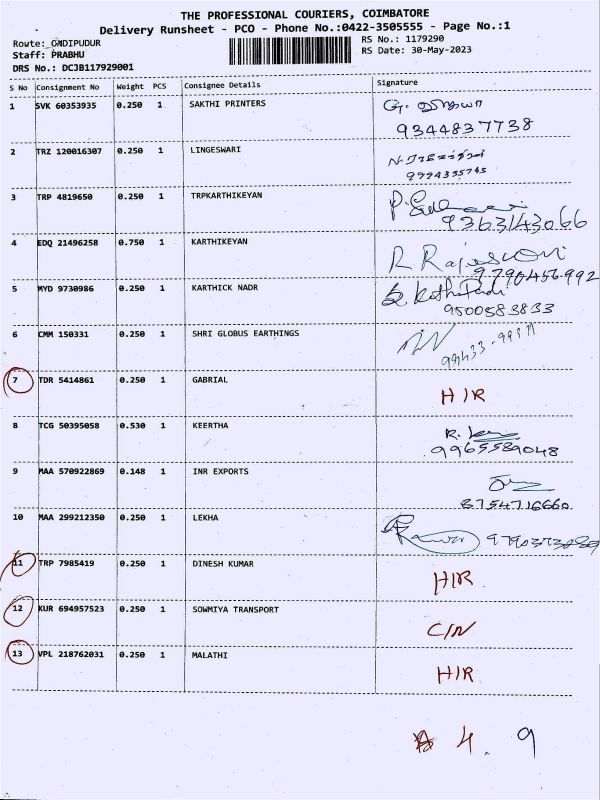 THE PROFESSIONAL COURIERS, COIMBATORE
Delivery Runsheet - PCO - Phone No.:0422-3505555 - Page No.:1
Route: GNDIPUDUR
RS No.: 1179290
Staff: PRABHU
RS Date: 30-May-2023
DRS No.: DCJB117929001
S No Consignment No Weight PCS Consignee Details Signature
1 SVK 60353935 0.250 1 SAKTHI PRINTERS
9344837738
2 TRZ 120016307 0.250 1 LINGESWARI
9994355745
3 TRP 4819650 0.250 1 TRPKARTHIKEYAN
9363143066
4 EDQ 21496258 0.750 1 KARTHIKEYAN R Rajeswari
9790456992
5 MYD 9730986 0.250 1 KARTHICK NADR
9500583833
6 CMM 150331 0.250 1 SHRI GLOBUS EARTHINGS
7 TDR 5414861 0.250 1 GABRIAL H/R
8 TCG 50395058 0.530 1 KEERTHA
9965589048
9 MAA 570922869 0.148 1 INR EXPORTS
8754716660
10 MAA 299212350 0.250 1 LEKHA
11 TRP 7985419 0.250 1 DINESH KUMAR H/R
12 KUR 694957523 0.250 1 SOWMIYA TRANSPORT C/N
13 VPL 218762031 0.250 1 MALATHI H/R
4. 9